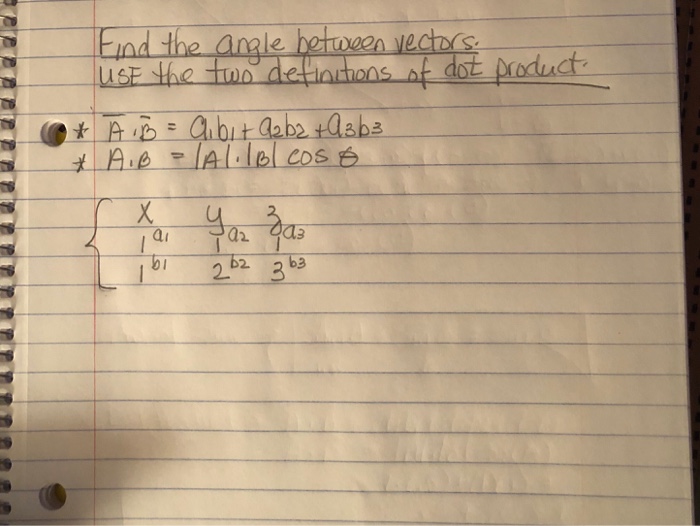 Find the angle between vectors.
USE the two definitions of dot product.
* A̅·B̅ = a₁b₁ + a₂b₂ + a₃b₃
* A·B = |A|·|B| cos θ
{ x y z
1 a₁ 1 a₂ 1 a₃
1 b₁ 2 b₂ 3 b₃